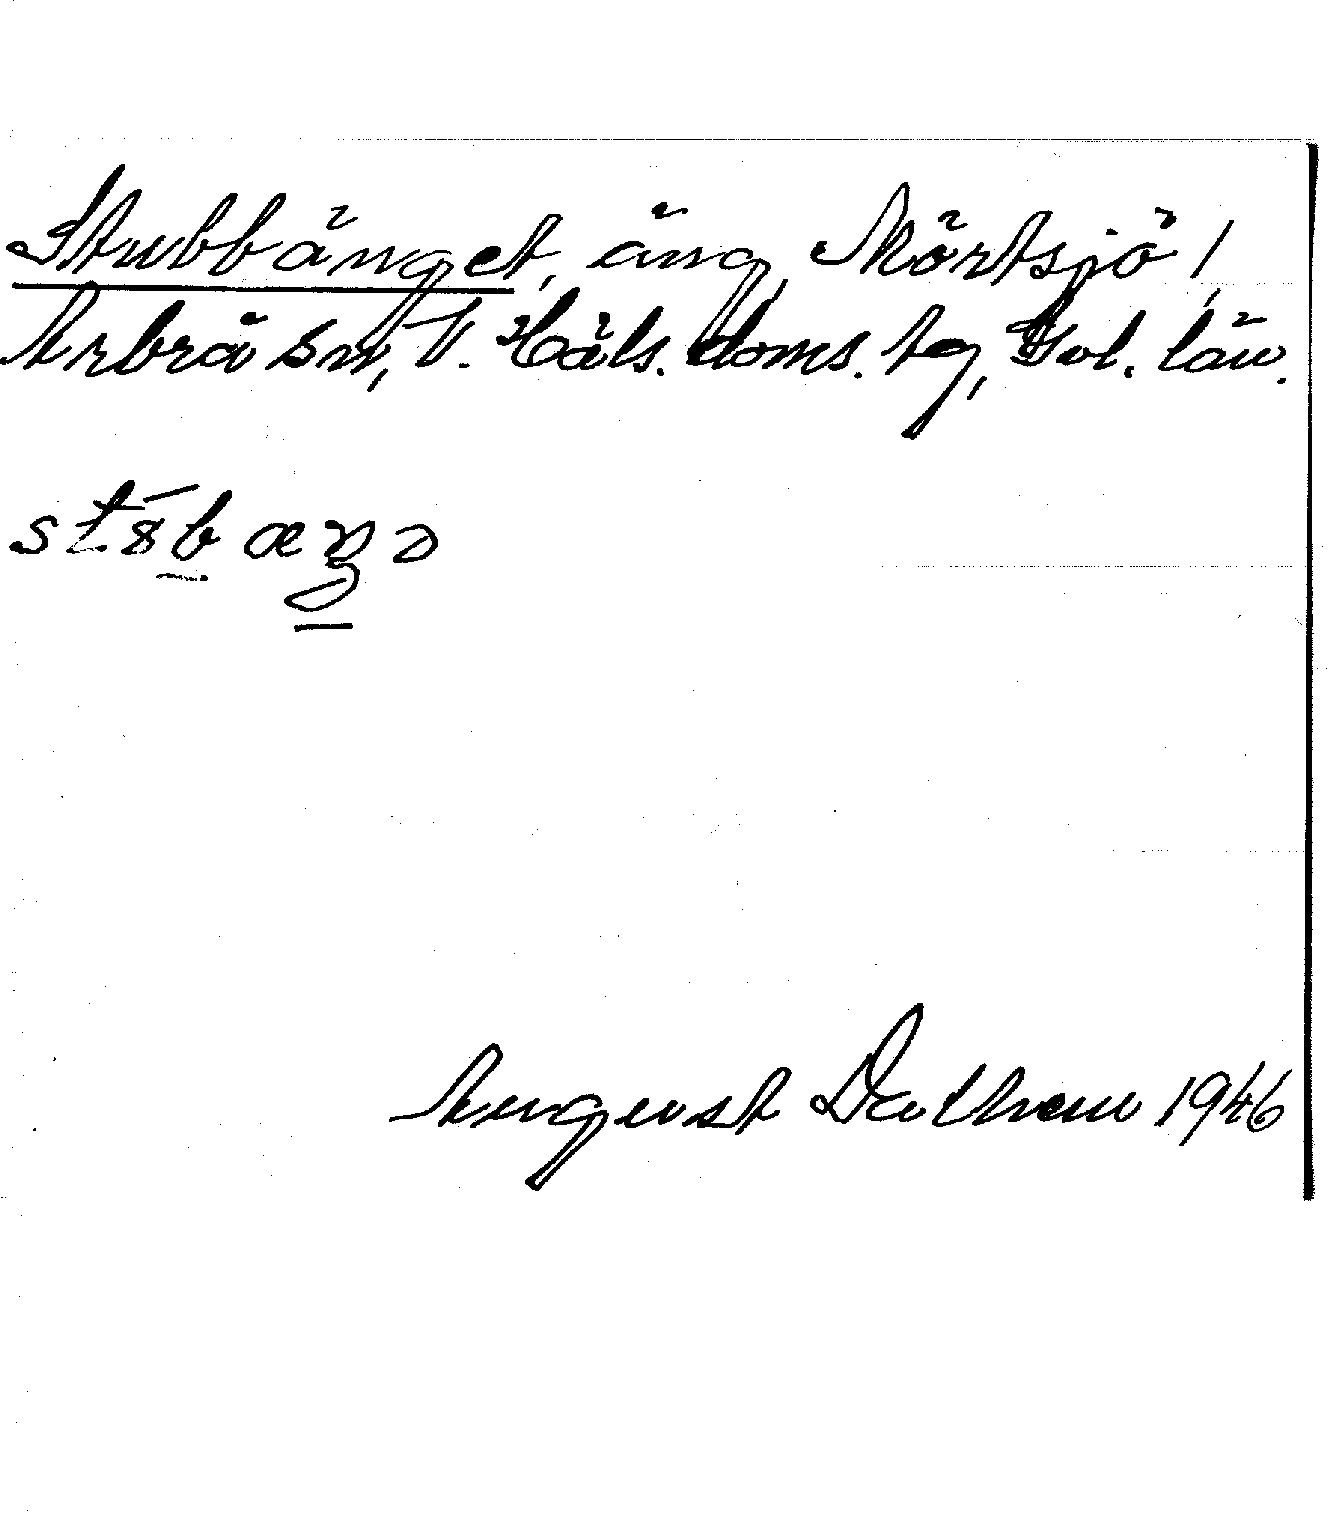 Stubbänget, äng, Mörtsjö 1,
Arbrå sn, V. Häls. doms. tg, Gvl. län.
August Dathen 1946